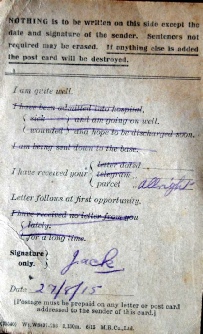 NOTHING is to be written on this side except the
date and signature of the sender. Sentences not
required may be erased. If anything else is added
the post card will be destroyed.
I am quite well.
I have been admitted into hospital,
sick and am going on well.
wounded and hope to be discharged soon.
I am being sent down to the base.
letter dated
I have received your telegram
parcel allright
Letter follows at first opportunity.
I have received no letter from you
lately.
for a long time.
Signature
only. Jack
Date 27/8/15
[Postage must be prepaid on any letter or post card
addressed to the sender of this card.]